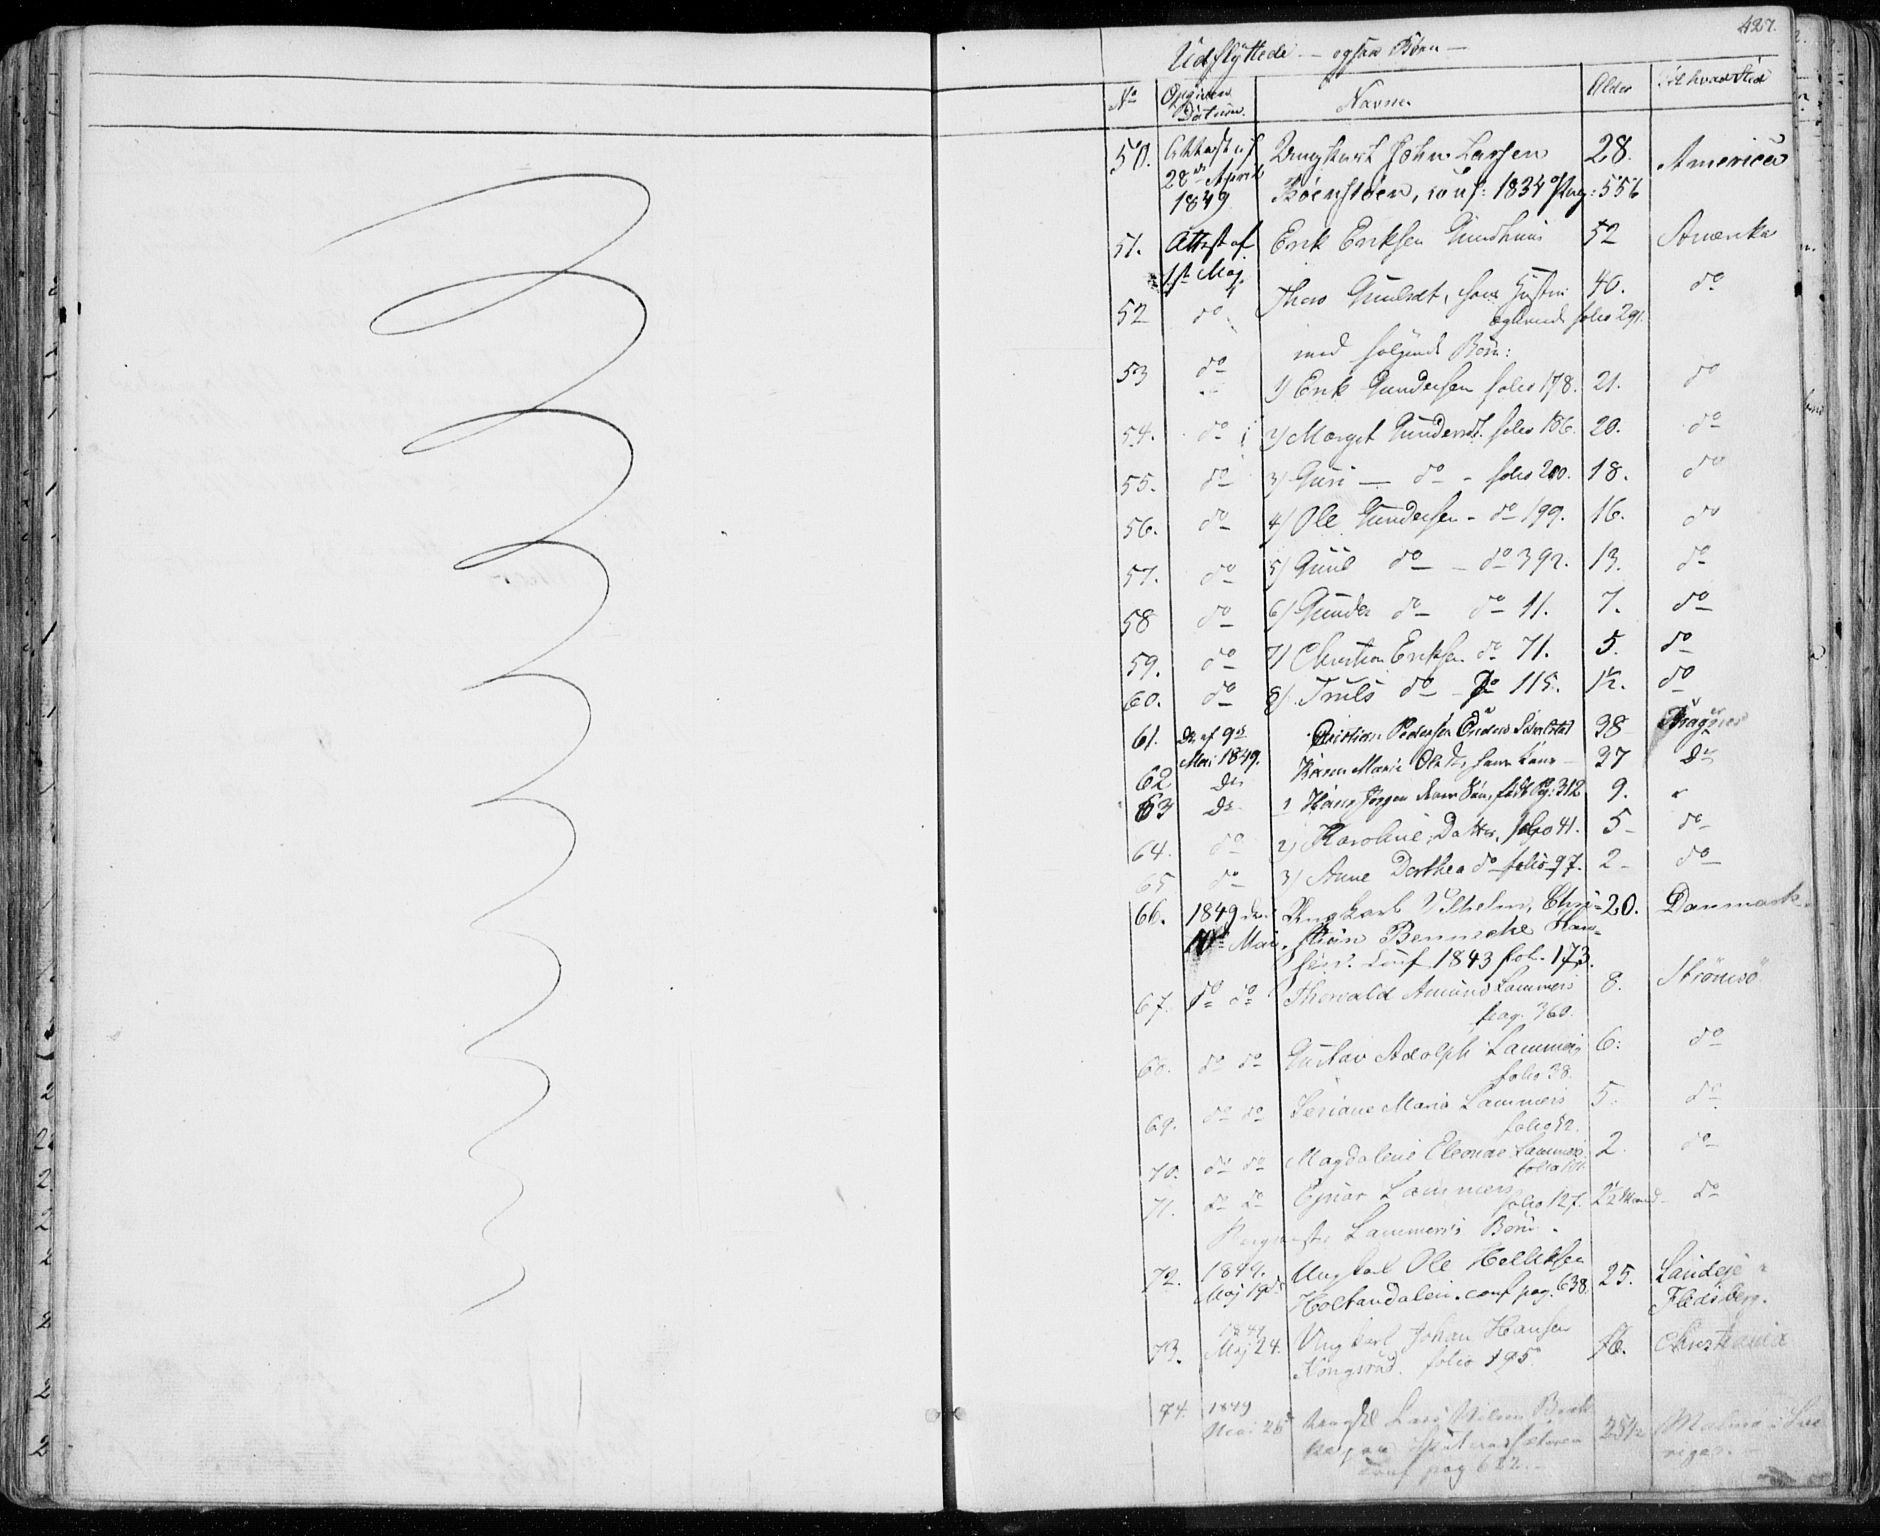 427.
Udflyttede — ogsaa Børn —
No Opgivelses Datum. Navne Alder Til hvad Sted
50. Attest af Ungkarl John Larsen 28. America
28de April
1849 conf: 1834 Pag: 556
51. Attest af Erik Eriksen 52 Amerika
1ste Maj.
52 do hans Hustru 40. do
folio 291.
med følgende Børn:
53 do 1) Erik Gundersen folio 178. 21. do
54. do 2) Marget Gundersdt. folio 186. 20. do
55. do 3) Guri — do - folio 200. 18. do
56. do 4) Ole Gundersen - do 199. 16. do
57. do 5) Guul do — do 392. 13. do
58 do 6) Gunder do do 11. 7. do
59. do 7) Christian Eriksen do 71. 5. do
60. do 8) Truls do - Do 115. 1½. do
61. Do af 9de Christian Pedersen 38 Bragnes
Mai 1849.
62 Do Karen Marie Olsdtr hans Kone — 37 Do
63 Do 1 Hans Jørgen deres Søn, født Pg: 312 9. "
64. do 2) Karoline, Datter, folio 41. 5 - do
65 do 3) Anne Dorthea do folio 97. 2 - do
66. 1849 den Ungkarl Vilhelm Chri- 20. Danmark.
10de Mai. stian Benneche Han-
sen. conf. 1843 fol. 173.
67. do do Thorvald Amund Lammers 8. Strömsö
pag. 360.
68. do do Gustav Adolph Lammers 6. do
folio 38.
69. do do Lammers 5. do
folio 52.
70. do do Magdalene Eleonore Lammers 2. do
folio 101.
71. do do Ejnar Lammers folio 127. 2½ Maaned do
Lammers's Børn.
72. 1849. Ungkarl Ole Helleksen 25. Landeje
Maj 19de Holtandalen. conf pag. 638. Flesberg.
73. 1849 Ungkarl Johan Hansen 16. Christiania
Maj 24. Kongsrud. folio 195
74. 1849 Ungkl Lars Nilsen 25½ Malmø i Sve
Mai 25 rige.
conf pag 622.